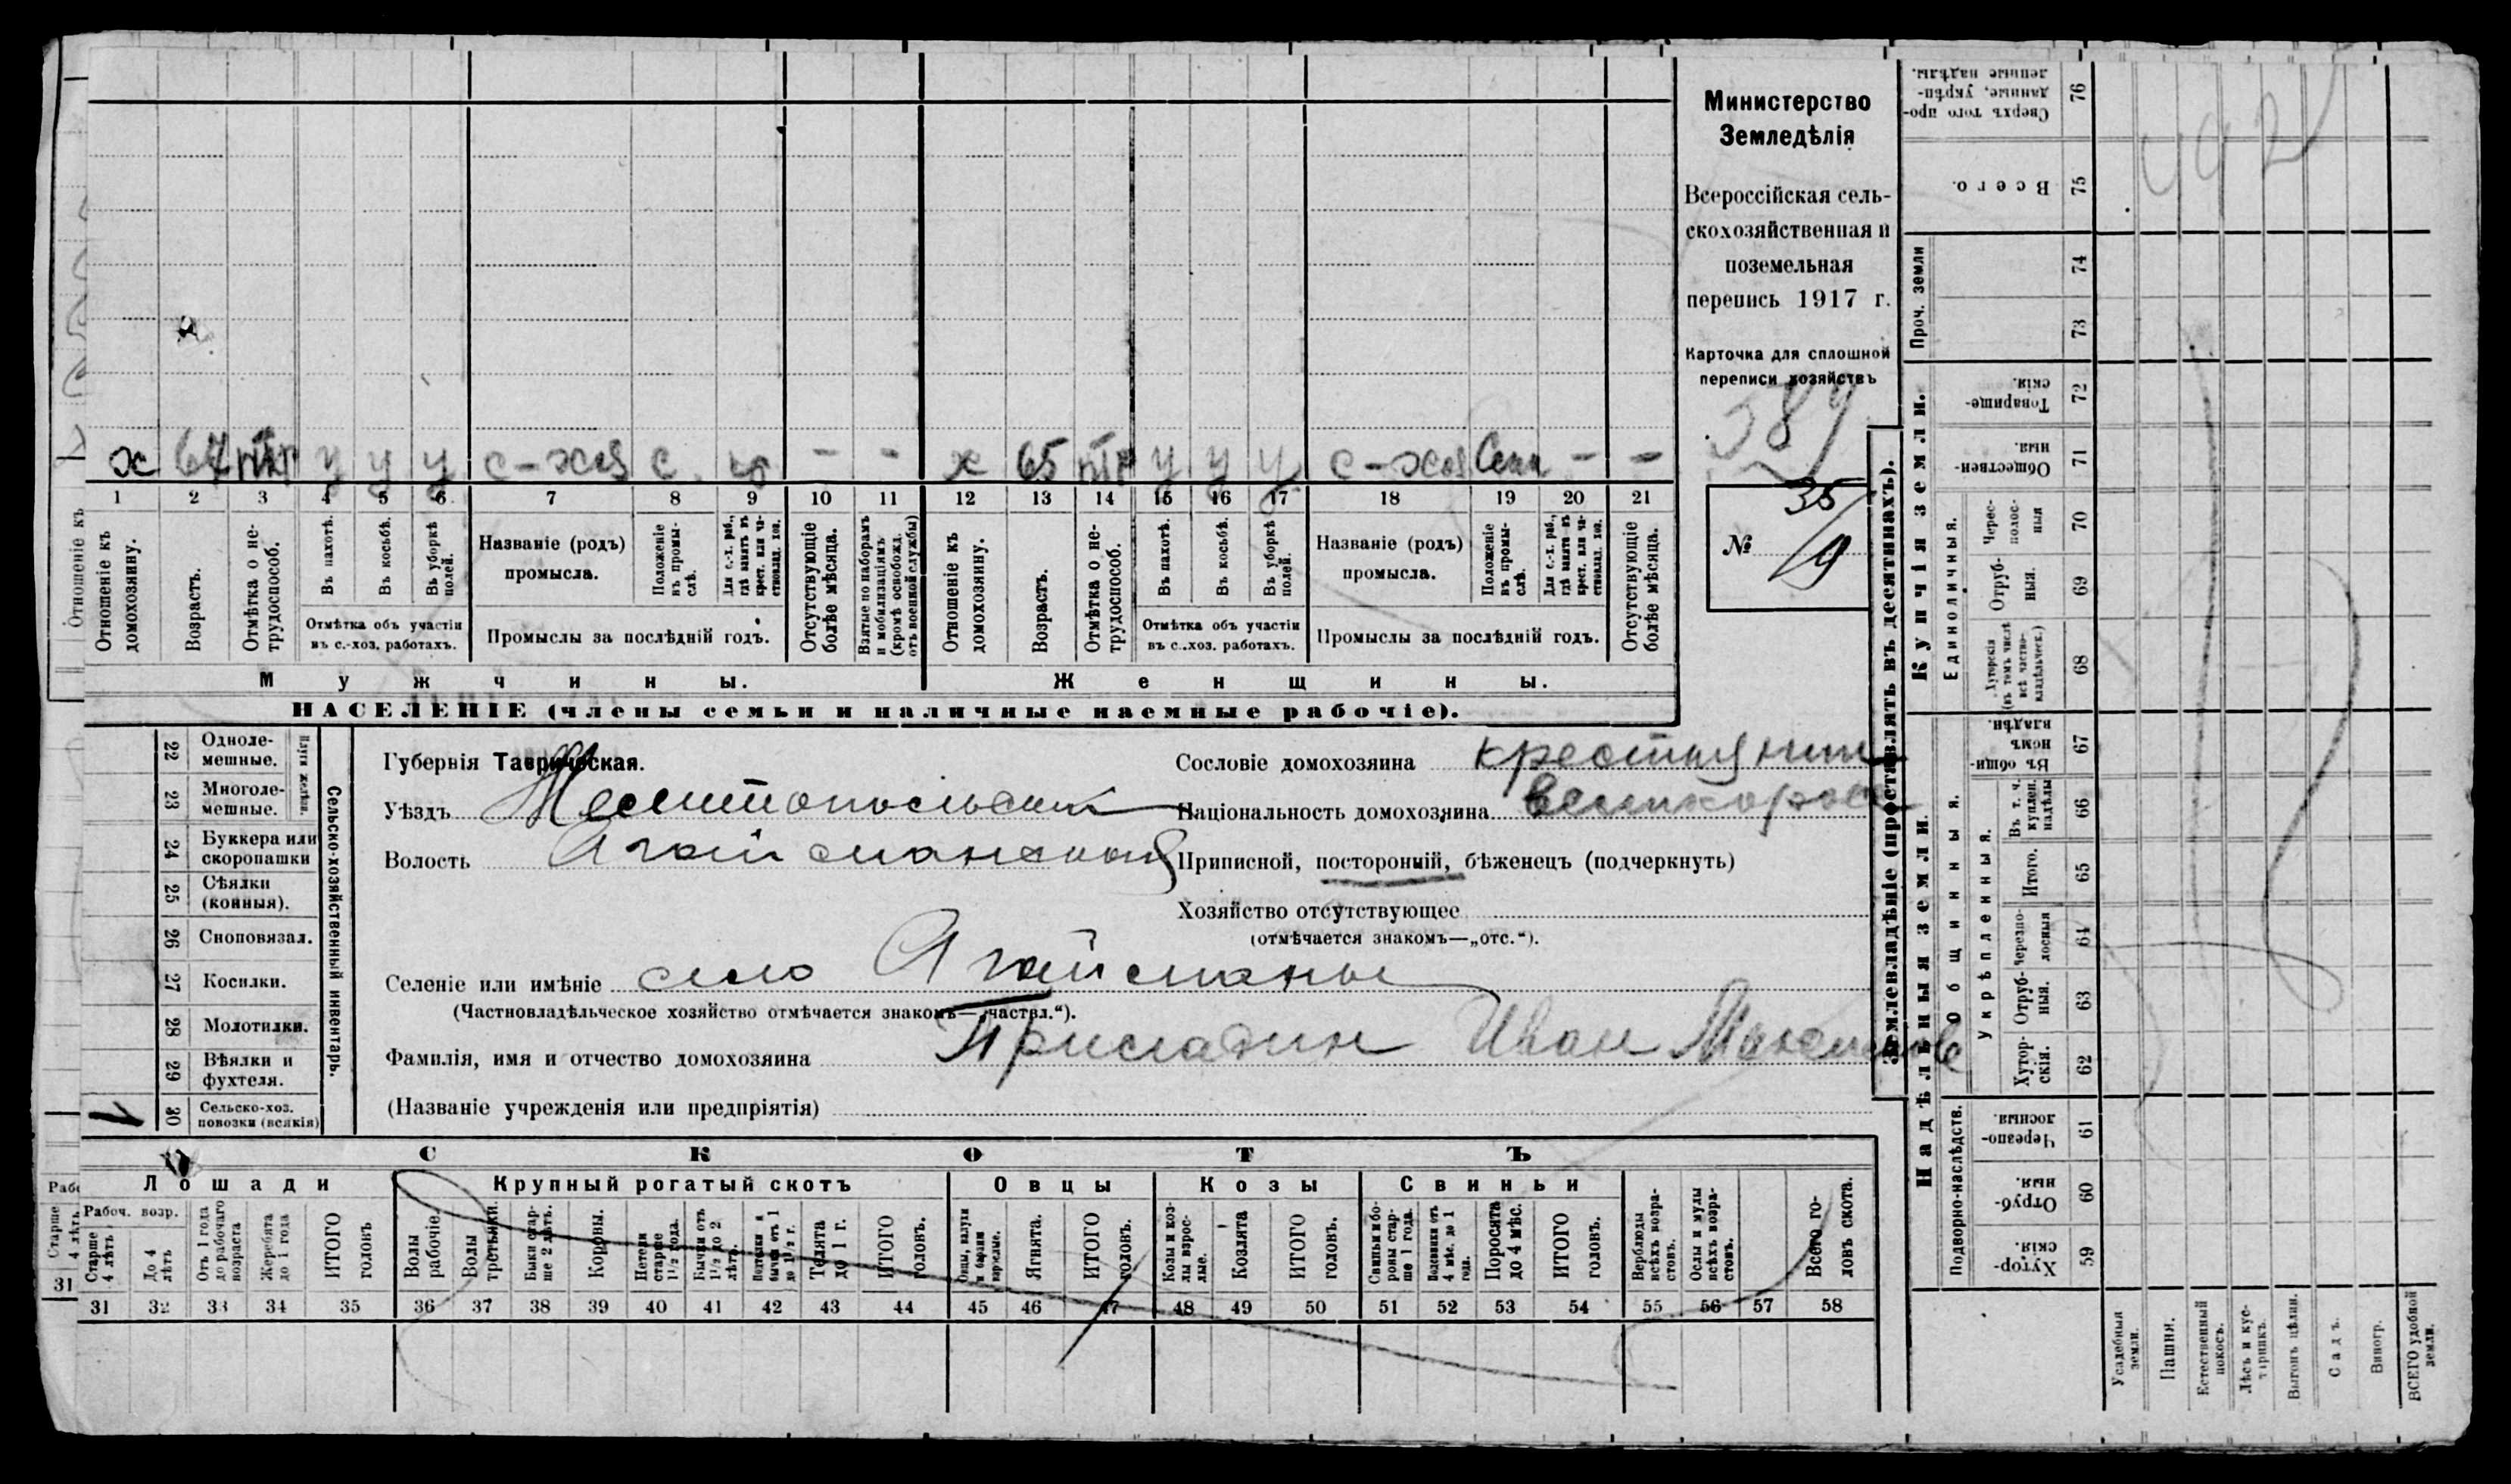 Министерство
Земледѣлія
Всероссійская сель-
скохозяйственная и
поземельная
перепись 1917 г.
Карточка для сплошной
переписи хозяйствъ
389
№ 35/9
х 67 у у у с-хоз с. - -
х 65 у у у с-хоз - -
1 2 3 4 5 6 7 8 9 10 11 12 13 14 15 16 17 18 19 20 21
Отношеніе къ домохозяину.
Возрастъ.
Отмѣтка о не-
трудоспособ.
Въ пахотѣ.
Въ косьбѣ.
Въ уборкѣ полей.
Отмѣтка объ участіи
въ с.-хоз. работахъ.
Названіе (родъ)
промысла.
Положеніе въ промы-
слѣ.
Для с.-х. раб., гдѣ занятъ въ крест. или ча-
стновлад. хоз.
Промыслы за послѣдній годъ.
Отсутствующіе болѣе мѣсяца.
Взятые по наборамъ и мобилизаціямъ (кромѣ освобожд. отъ военной службы)
Отношеніе къ домохозяину.
Возрастъ.
Отмѣтка о не-
трудоспособ.
Въ пахотѣ.
Въ косьбѣ.
Въ уборкѣ полей.
Отмѣтка объ участіи
въ с..хоз. работахъ.
Названіе (родъ)
промысла.
Положеніе въ промы-
слѣ.
Для с.-х. раб., гдѣ занята въ крест. или ча-
стновлад. хоз.
Промыслы за послѣдній годъ.
Отсутствующіе болѣе мѣсяца.
Мужчины.
Женщины.
НАСЕЛЕНІЕ (члены семьи и наличные наемные рабочіе).
Сельско-хозяйственный инвентарь.
22 Одноле-
мешные.
23 Многоле-
мешные.
24 Буккера или
скоропашки
25 Сѣялки
(конныя).
26 Сноповязал.
27 Косилки.
28 Молотилки.
29 Вѣялки и
фухтеля.
30 Сельско-хоз.
повозки (всякія)
1
Губернія Таврическая.
Уѣздъ Мелитопольский
Волость Агайманская
Селеніе или имѣніе село Агайманы
(Частновладѣльческое хозяйство отмѣчается знакомъ—„частвл.“).
Фамилія, имя и отчество домохозяина Присладин Иван Максимов
(Названіе учрежденія или предпріятія)
Сословіе домохозяина крестьянин
Національность домохозяина великоросс
Приписной, посторонній, бѣженецъ (подчеркнуть)
Хозяйство отсутствующее
(отмѣчается знакомъ—„отс.“).
СКОТЪ
Лошади
Рабоч. возр.
Старше 4 лѣтъ
До 4 лѣтъ
Отъ 1 года до рабочаго возраста
Жеребята до 1 года
ИТОГО головъ
Крупный рогатый скотъ
Волы рабочіе.
Волы третьяки.
Быки стар-
ше 2 лѣтъ.
Коровы.
Нетели старше 1½ года.
Бычки отъ 1½ до 2 лѣтъ.
Телята до 1 г.
ИТОГО головъ.
Овцы
Ягнята.
ИТОГО головъ.
Козы
Козы и коз-
лы взрос-
лые.
Козлята
ИТОГО головъ.
Свиньи
Свиньи и бо-
ровы стар-
ше 1 года.
Подсвинки отъ 4 мѣс. до 1 года.
Поросята до 4 мѣс.
ИТОГО головъ.
Верблюды всѣхъ возра-
стовъ.
Ослы и мулы всѣхъ возра-
стовъ.
Всего го-
ловъ скота.
31 32 33 34 35 36 37 38 39 40 41 42 43 44 45 46 47 48 49 50 51 52 53 54 55 56 57 58
Землевладѣніе (проставлять въ десятинахъ).
Купчія земли.
Проч. земли
Единоличныя.
Надѣльныя земли.
Общинныя.
Укрѣпленныя.
Подворно-наслѣдств.
76 Сверхъ того про-
данные, укрѣп-
ленные надѣлы.
75 Всего.
74
73
72 Товарище-
скія.
71 Обществен-
ныя.
70 Черес-
полос-
ныя
69 Отруб-
ныя.
68 Хуторскія (въ томъ числѣ всѣ частно-
владѣльческ.)
67 Въ общин-
номъ владѣн.
66 Въ т. ч. куплен. надѣлы
65 Итого.
64 Черезпо-
лосныя
63 Отруб-
ныя.
62 Хутор-
скія.
61 Черезпо-
лосныя
60 Отруб-
ныя.
59 Хутор-
скія.
Усадебныя земли.
Пашня.
Естественный покосъ.
Лѣсъ и кус-
тарникъ.
Выгонъ цѣлин.
Садъ.
Виногр.
ВСЕГО удобной земли.